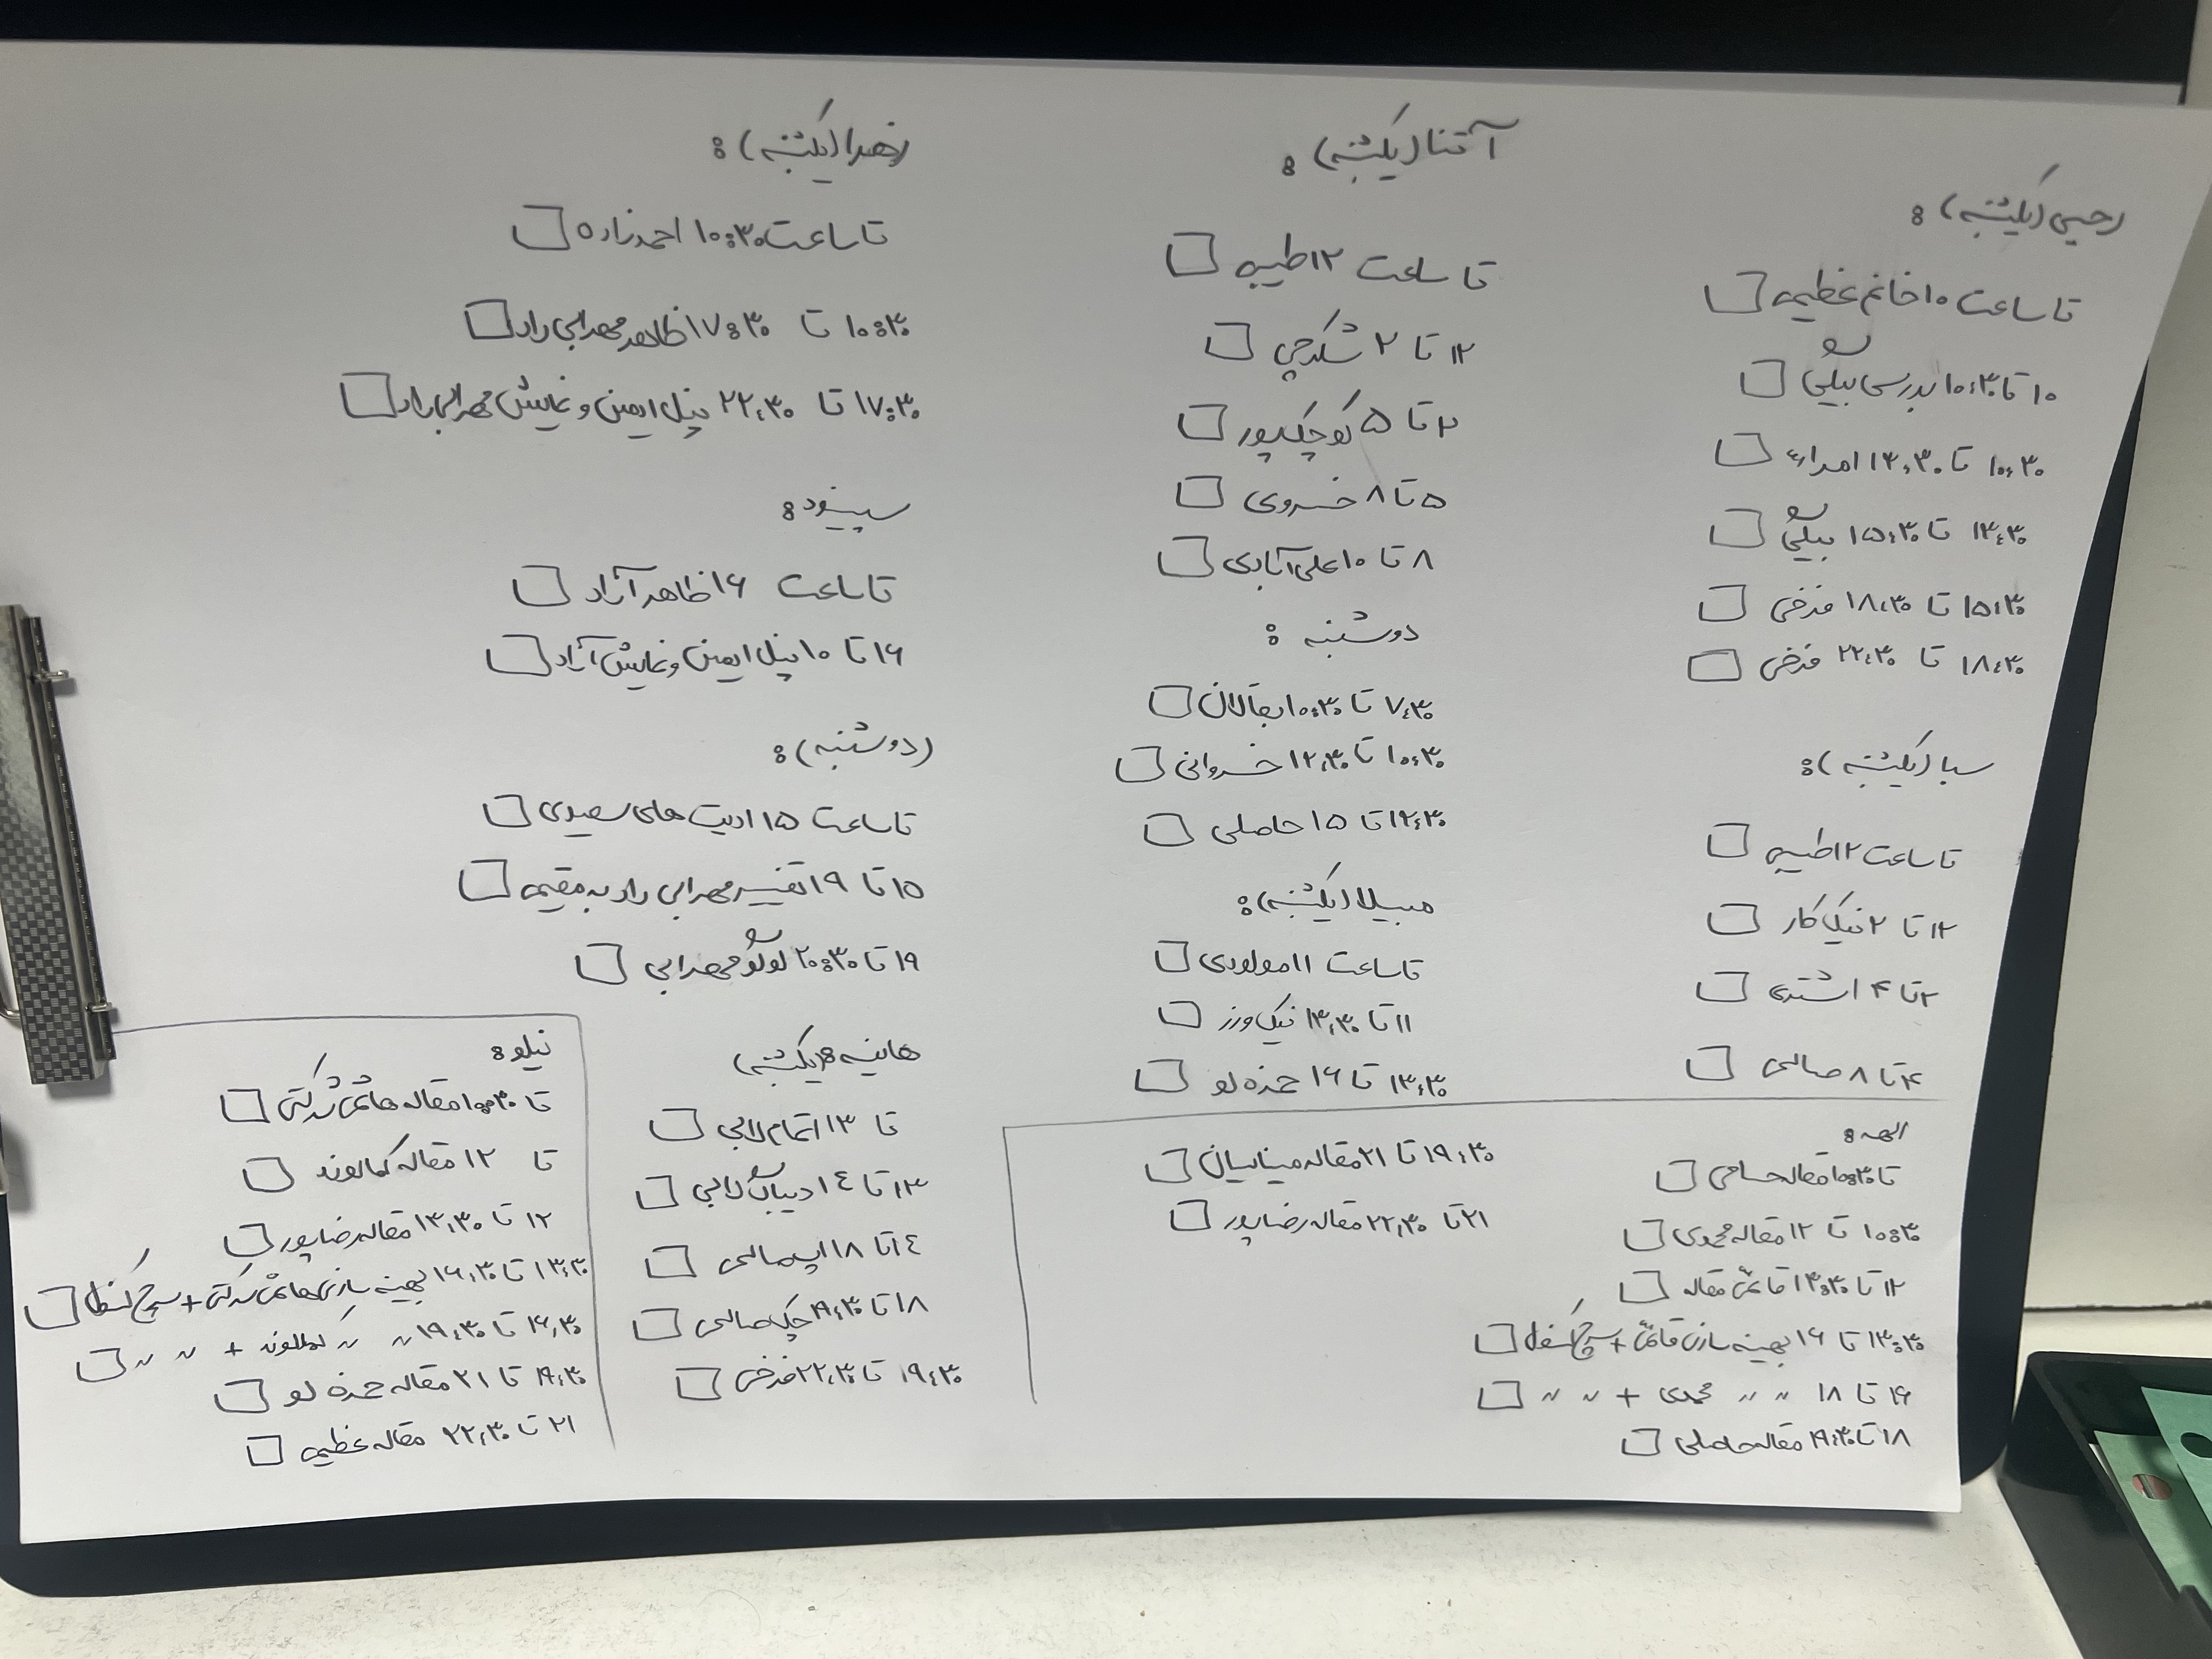 رحیمی (یکشنبه):
تا ساعت ۱۰ خانم عظیمی
۱۰ تا ۱۰:۳۰ بررسی
۱۰:۳۰ تا ۱۳:۳۰
۱۳:۳۰ تا ۱۵:۳۰
۱۵:۳۰ تا ۱۸:۳۰ فرخی
۱۸:۳۰ تا ۲۲:۳۰ فرخی
سبا (یکشنبه):
تا ساعت ۱۲ طیبی
۱۲ تا ۲ نیک کار
۲ تا ۴ اشتری
۴ تا ۸ صالحی
آتنا (یکشنبه):
تا ساعت ۱۲ طیبی
۱۲ تا ۲ شکرچی
۲ تا ۵ کوچکپور
۵ تا ۸ خسروی
۸ تا ۱۰ علی آبادی
دوشنبه:
۷:۳۰ تا ۱۰:۳۰ بقالان
۱۰:۳۰ تا ۱۲:۳۰ خسروانی
۱۲:۳۰ تا ۱۵ حاصلی
مبیلا (یکشنبه):
تا ساعت ۱۱ مولودی
۱۱ تا ۱۳:۳۰ نیک ورز
۱۳:۳۰ تا ۱۶ حمزه لو
زهرا (یکشنبه):
تا ساعت ۱۰:۳۰ احمدزاده
۱۰:۳۰ تا ۱۷:۳۰ ظاهر مهرابی راد
۱۷:۳۰ تا ۲۲:۳۰ پنل ایمین و نمایش مهرابی راد
سپینود:
تا ساعت ۱۶ ظاهر آزاد
۱۶ تا ۱۰ پنل ایمین و نمایش آزاد
(دوشنبه):
تا ساعت ۱۵ ادیت های سعیدی
۱۵ تا ۱۹ تفسیر مهرابی راد به مقیمی
۱۹ تا ۲۰:۳۰ لوگو مهرابی
هانیه: (یکشنبه)
تا ۱۳ اتمام لابی
۱۳ تا ۱۴ لابی
۱۴ تا ۱۸ صالحی
۱۸ تا ۱۹:۳۰ چک صالحی
۱۹:۳۰ تا ۲۲:۳۰ فرخی
الهه:
تا ۱۰:۳۰ مقاله حسامی
۱۰:۳۰ تا ۱۲ مقاله محمدی
۱۲ تا ۱۳:۳۰ قائمی مقاله
۱۳:۳۰ تا ۱۶ بهینه سازی قائمی + سرچ کنسول
۱۶ تا ۱۸ 〃 〃 محمدی + 〃 〃
۱۸ تا ۱۹:۳۰ مقاله حاصلی
۱۹:۳۰ تا ۲۱ مقاله میناییان
۲۱ تا ۲۲:۳۰ مقاله رضاپور
نیلو:
تا ۱۰:۳۰ مقاله هاشمی شرکتی
تا ۱۲ مقاله کمالوند
۱۲ تا ۱۳:۳۰ مقاله رضاپور
۱۳:۳۰ تا ۱۶:۳۰ بهینه سازی هاشمی شرکتی + سرچ کنسول
۱۶:۳۰ تا ۱۹:۳۰ 〃 〃 کمالوند + 〃 〃
۱۹:۳۰ تا ۲۱ مقاله حمزه لو
۲۱ تا ۲۲:۳۰ مقاله عظیمی